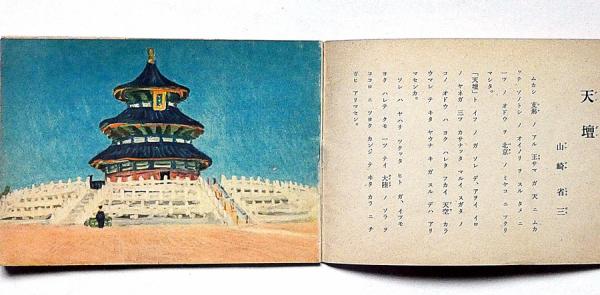 天壇
山崎省三
ムカシ 支那 ノ アル 王サマ ガ 天 ニ ムカ
ツテ ソノトシ ノ オイノリ ヲ スル タメ ニ
一ツ ノ オドウ ヲ 北京 ノ ミヤコ ニ ツクリ
マシタ。
「天壇」 ト イフ ノ ガ ソレ デ、アヲイ イロ
ノ ヤネ ガ 三ツ カサナツタ マルイ スガタ ノ
コノ オドウ ハ ヨク ハレタ フカイ 天空 カラ
ウマレ テ キタ ヤウナ キ ガ スル デハ アリ
マセンカ。
ソレ ハ ヤハリ ツクツタ ヒト ガ、イツモ
ヨク ハレテ クモ 一ツ ナイ 大陸 ノ ソラ ヲ
ココロ ニ ツヨク カンジ テ ヰタ カラ ニ チ
ガヒ アリマセン。